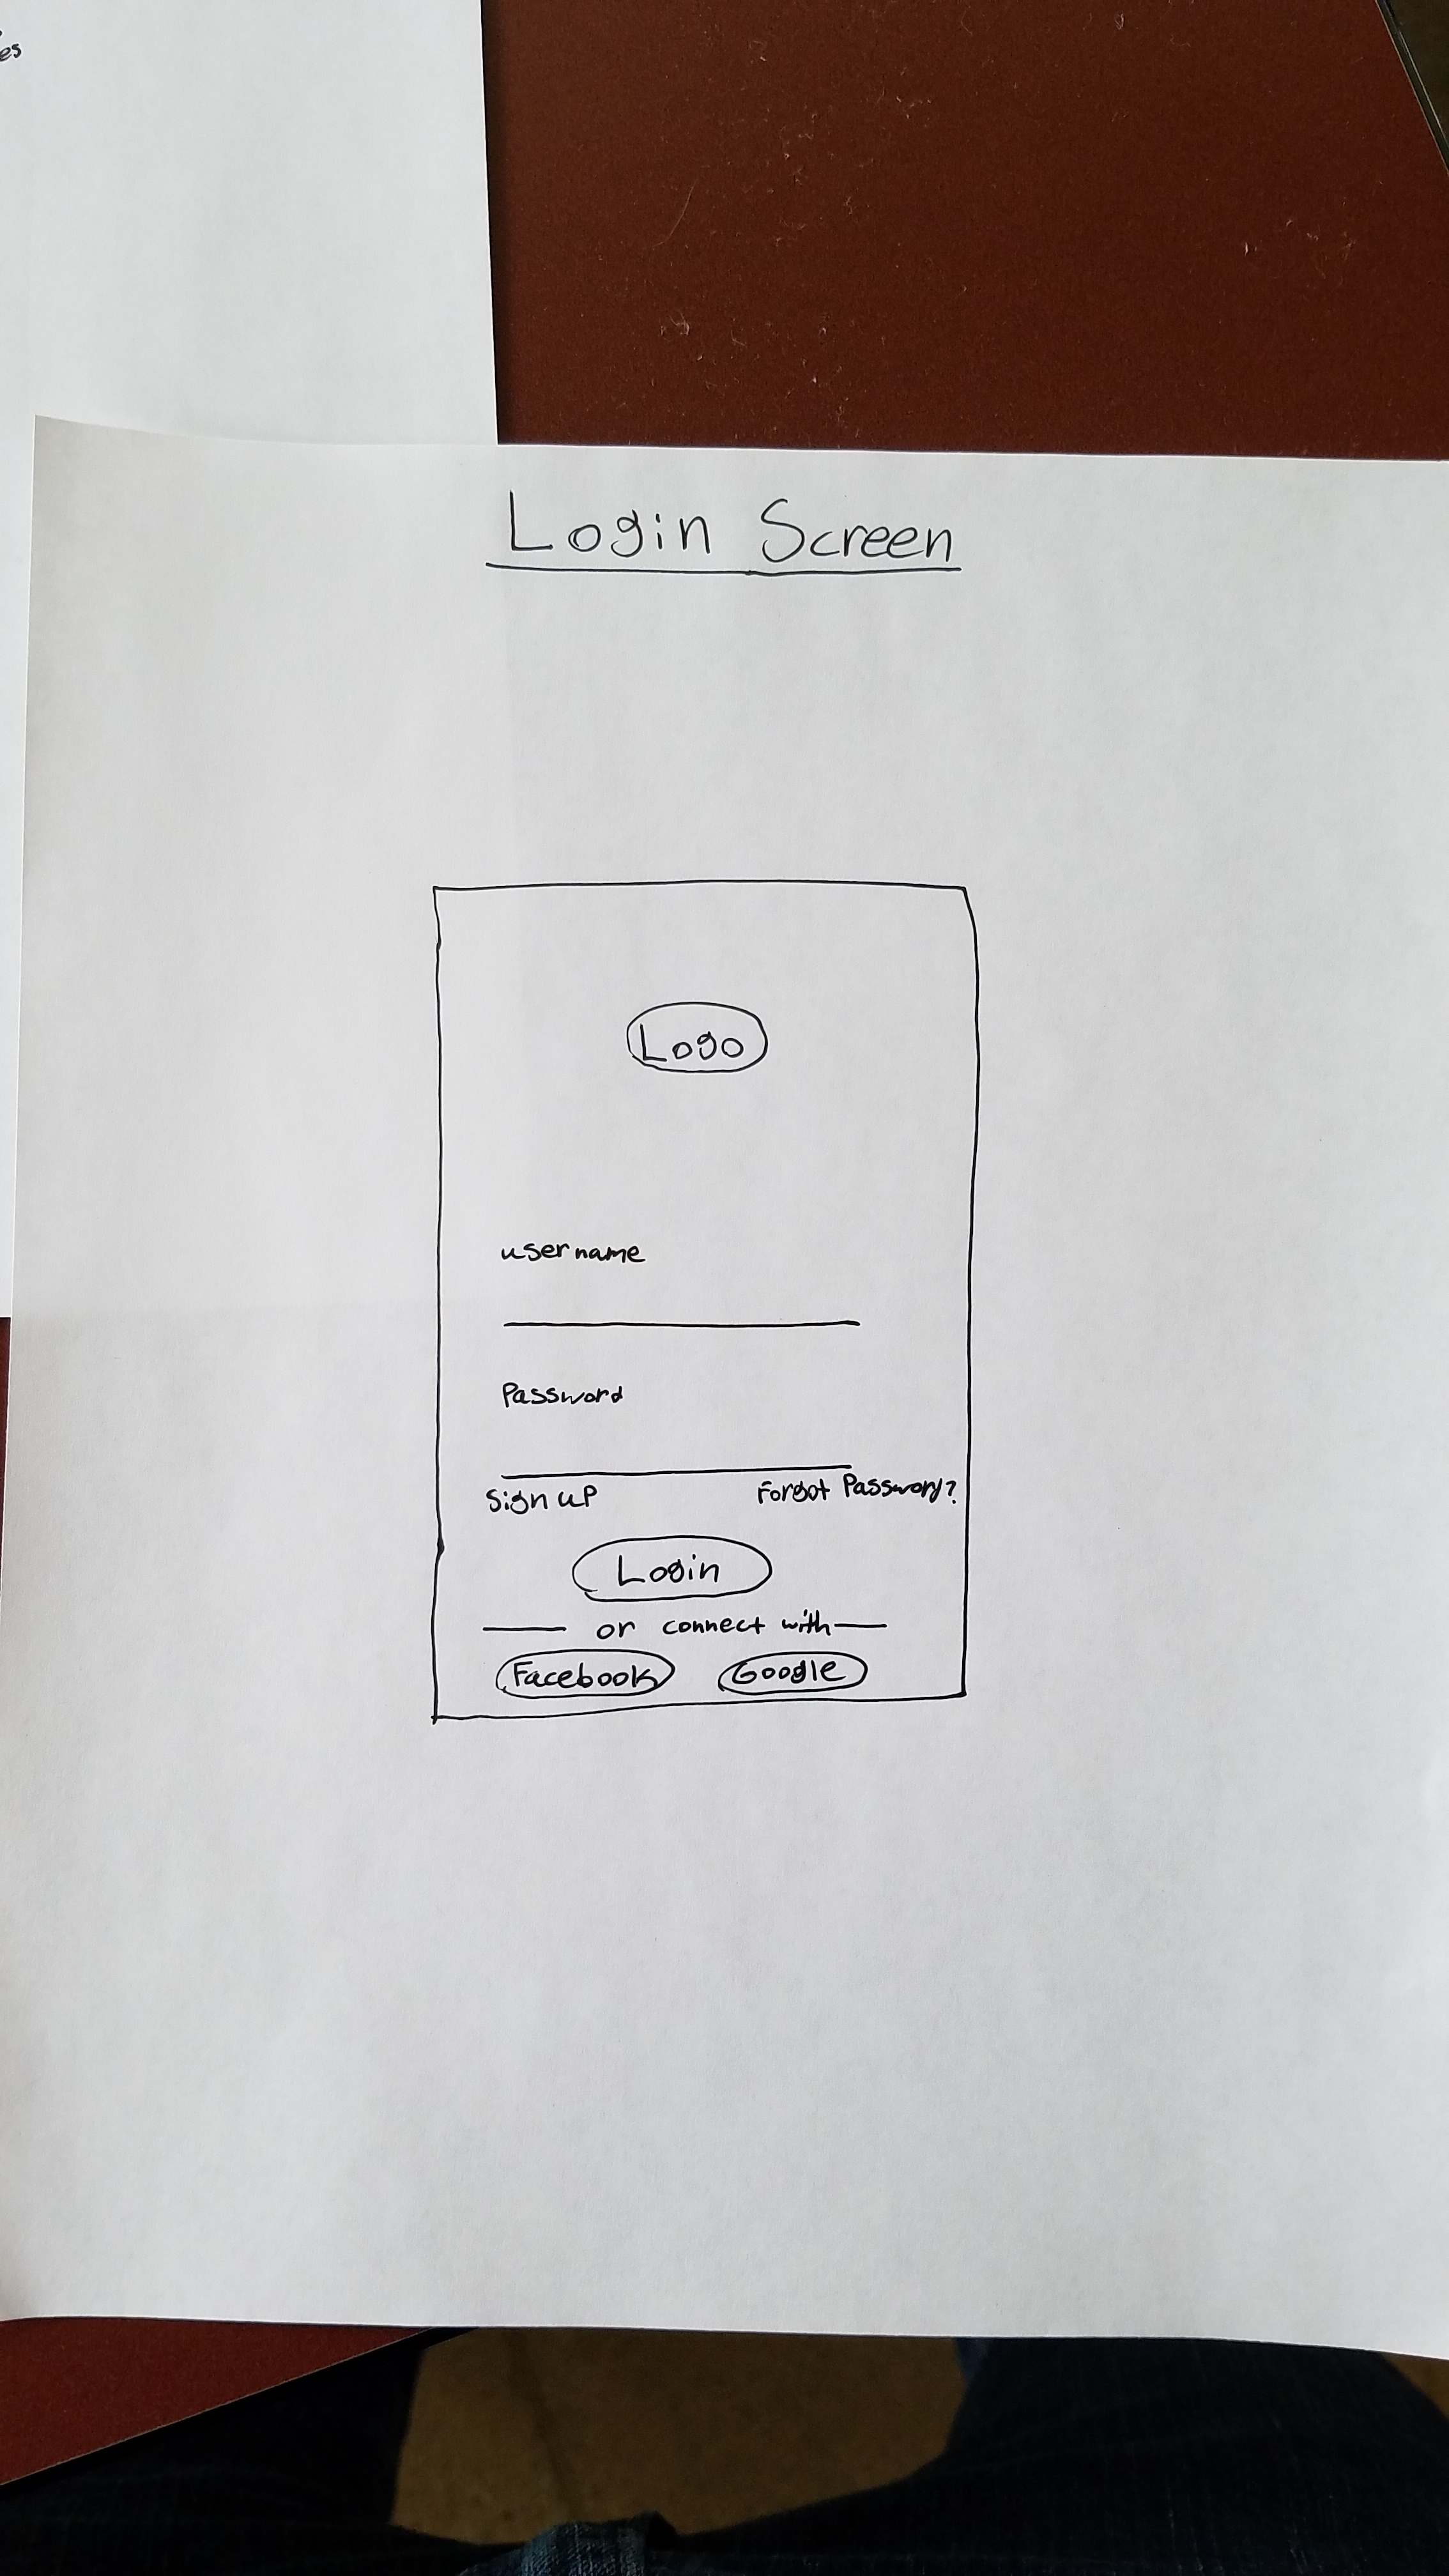 es
Login Screen
Logo
username
Password
Sign up
Forgot Password?
Login
or connect with
Facebook
Google